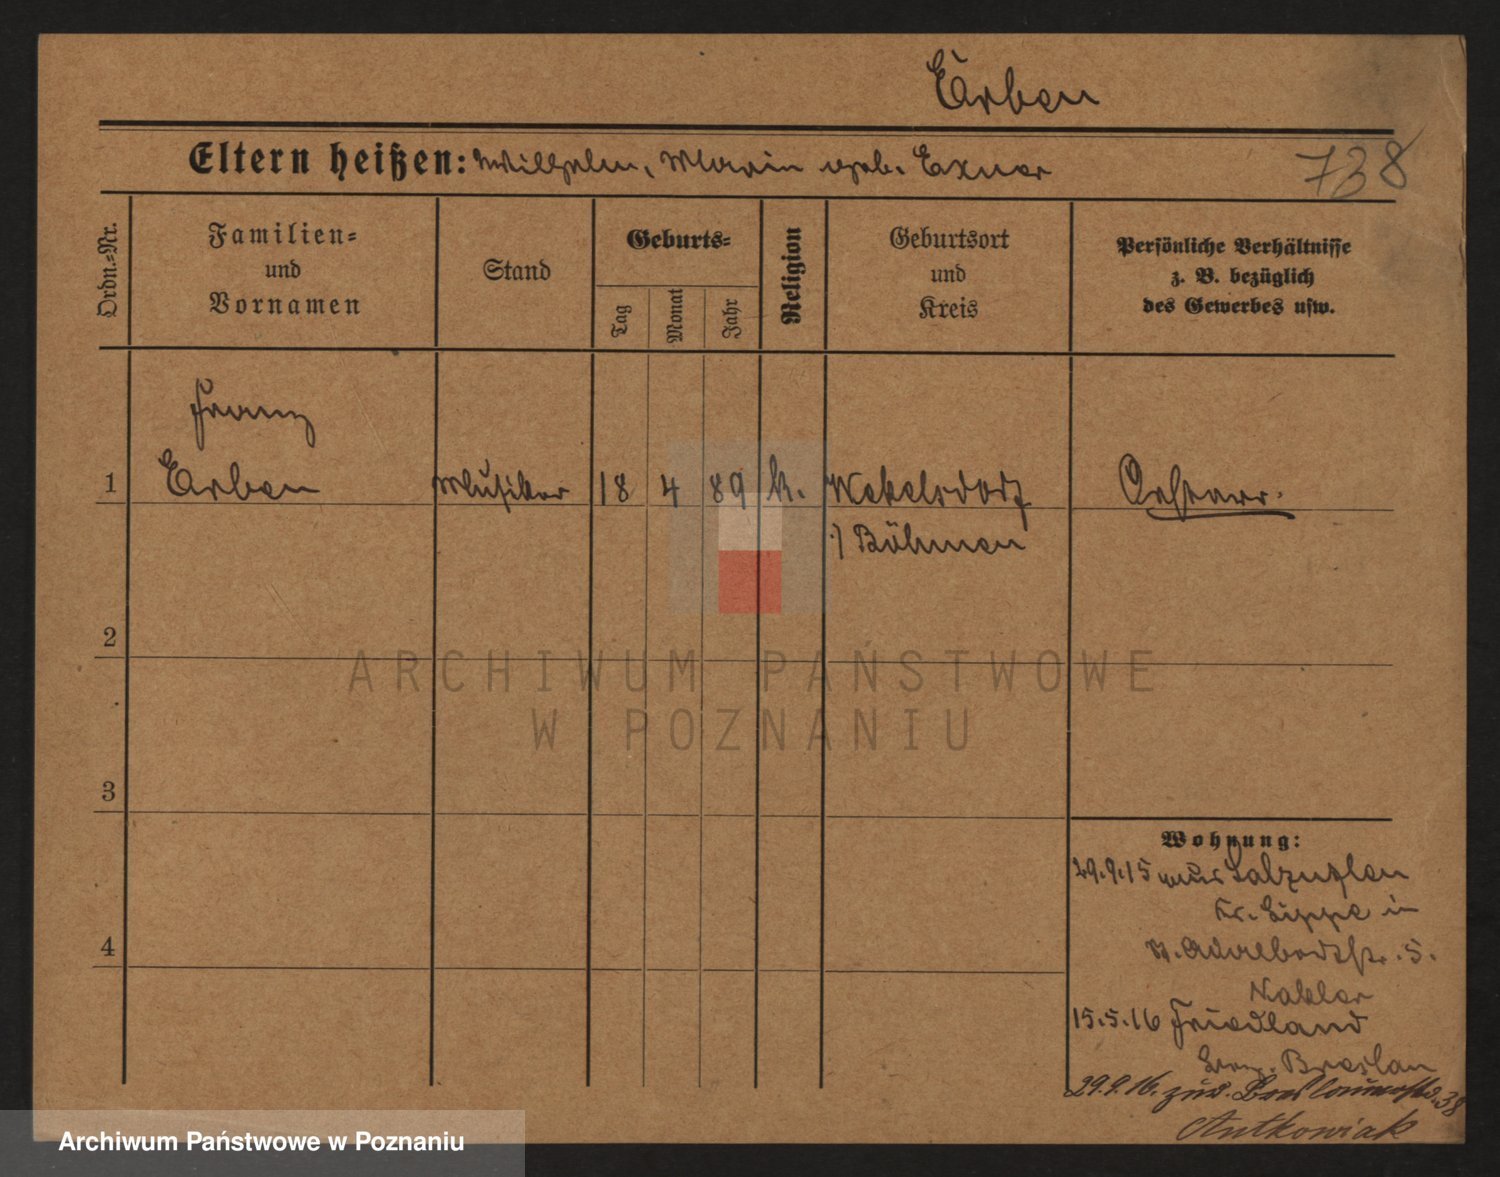 Erben
Eltern heißen: Wilhelm, Maria geb. Exner
738
Ordn.=Nr.
Familien=
und
Vornamen
Stand
Geburts=
Tag
Monat
Jahr
Religion
Geburtsort
und
Kreis
Persönliche Verhältnisse
z. B. bezüglich
des Gewerbes usw.
Franz
1 Erben Musiker 18 4 89 k. Wekelsdorf Oesterr.
Böhmen
2
3
4
Wohnung:
29.9.15 aus Salzuflen
Kr. Lippe in
Adalbertstr. 5.
15.5.16 Friedland
Breslau
29.9.16. zur. Breslauerstr. 38
Antkowiak
ARCHIWUM PAŃSTWOWE
W POZNANIU
Archiwum Państwowe w Poznaniu